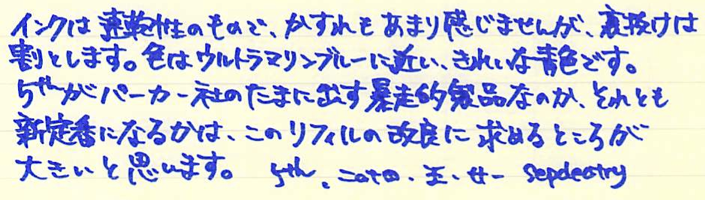 インクは速乾性のもので、かすれもあまり感じませんが、裏抜けは
割とします。色はウルトラマリンブルーに近い、きれいな青色です。
5thがパーカー社のたまに出す暴走的製品なのか、それとも
新定番になるかは、このリフィルの改良に求めるところが
大きいと思います。 5th.